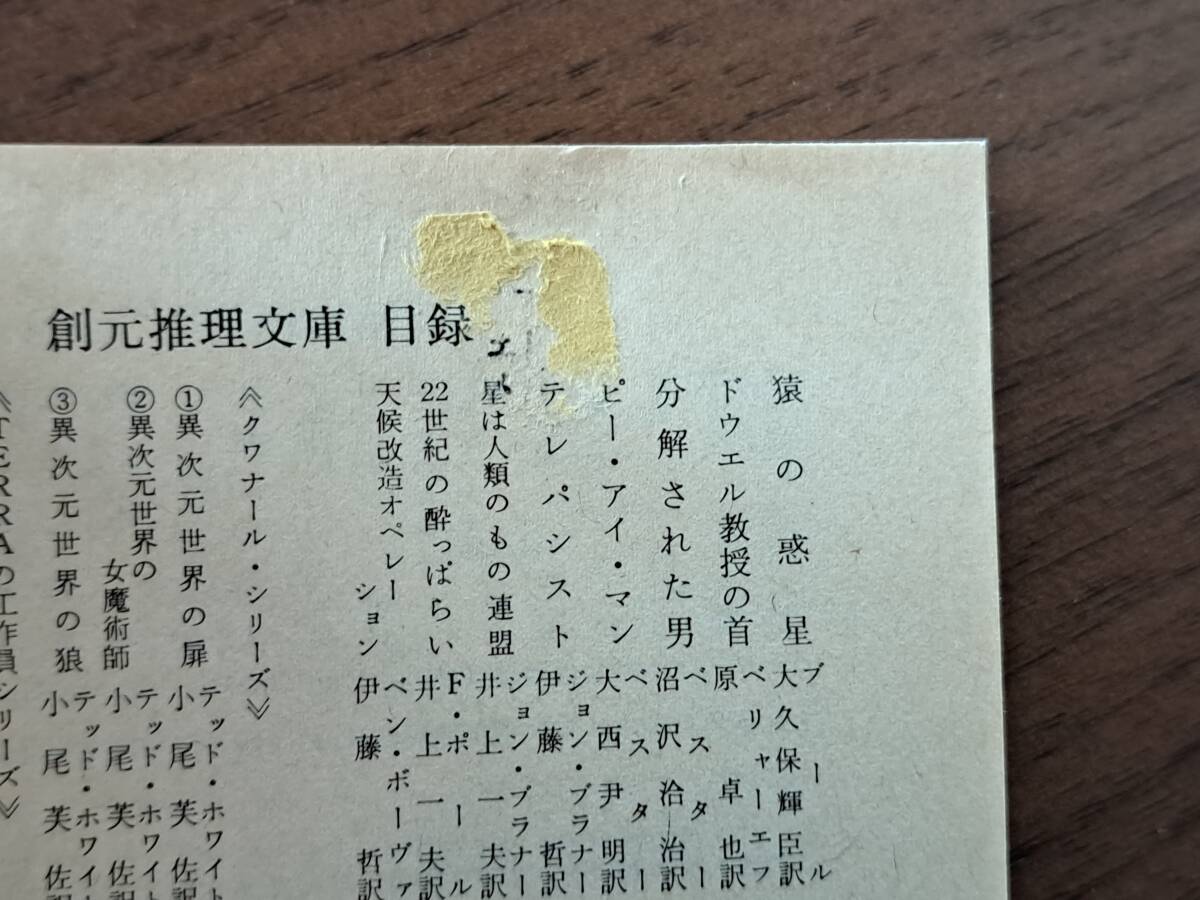 創元推理文庫 目録
猿の惑星
ブール
大久保輝臣訳
ドウエル教授の首
ベリャーエフ
原卓也訳
分解された男
ベスター
沼沢洽治訳
ピー・アイ・マン
ベスター
大西尹明訳
テレパシスト
ジョン・ブラナー
伊藤哲訳
星は人類のもの連盟
ジョン・ブラナー
井上一夫訳
22世紀の酔っぱらい
F・ポール
井上一夫訳
天候改造オペレーション
ベン・ボーヴァ
伊藤哲訳
《クワナール・シリーズ》
①異次元世界の扉
テッド・ホワイト
小尾芙佐訳
②異次元世界の
女魔術師
テッド・ホワイト
小尾芙佐訳
③異次元世界の狼
テッド・ホワイ
小尾芙佐訳
《TERRAの工作員シリーズ》